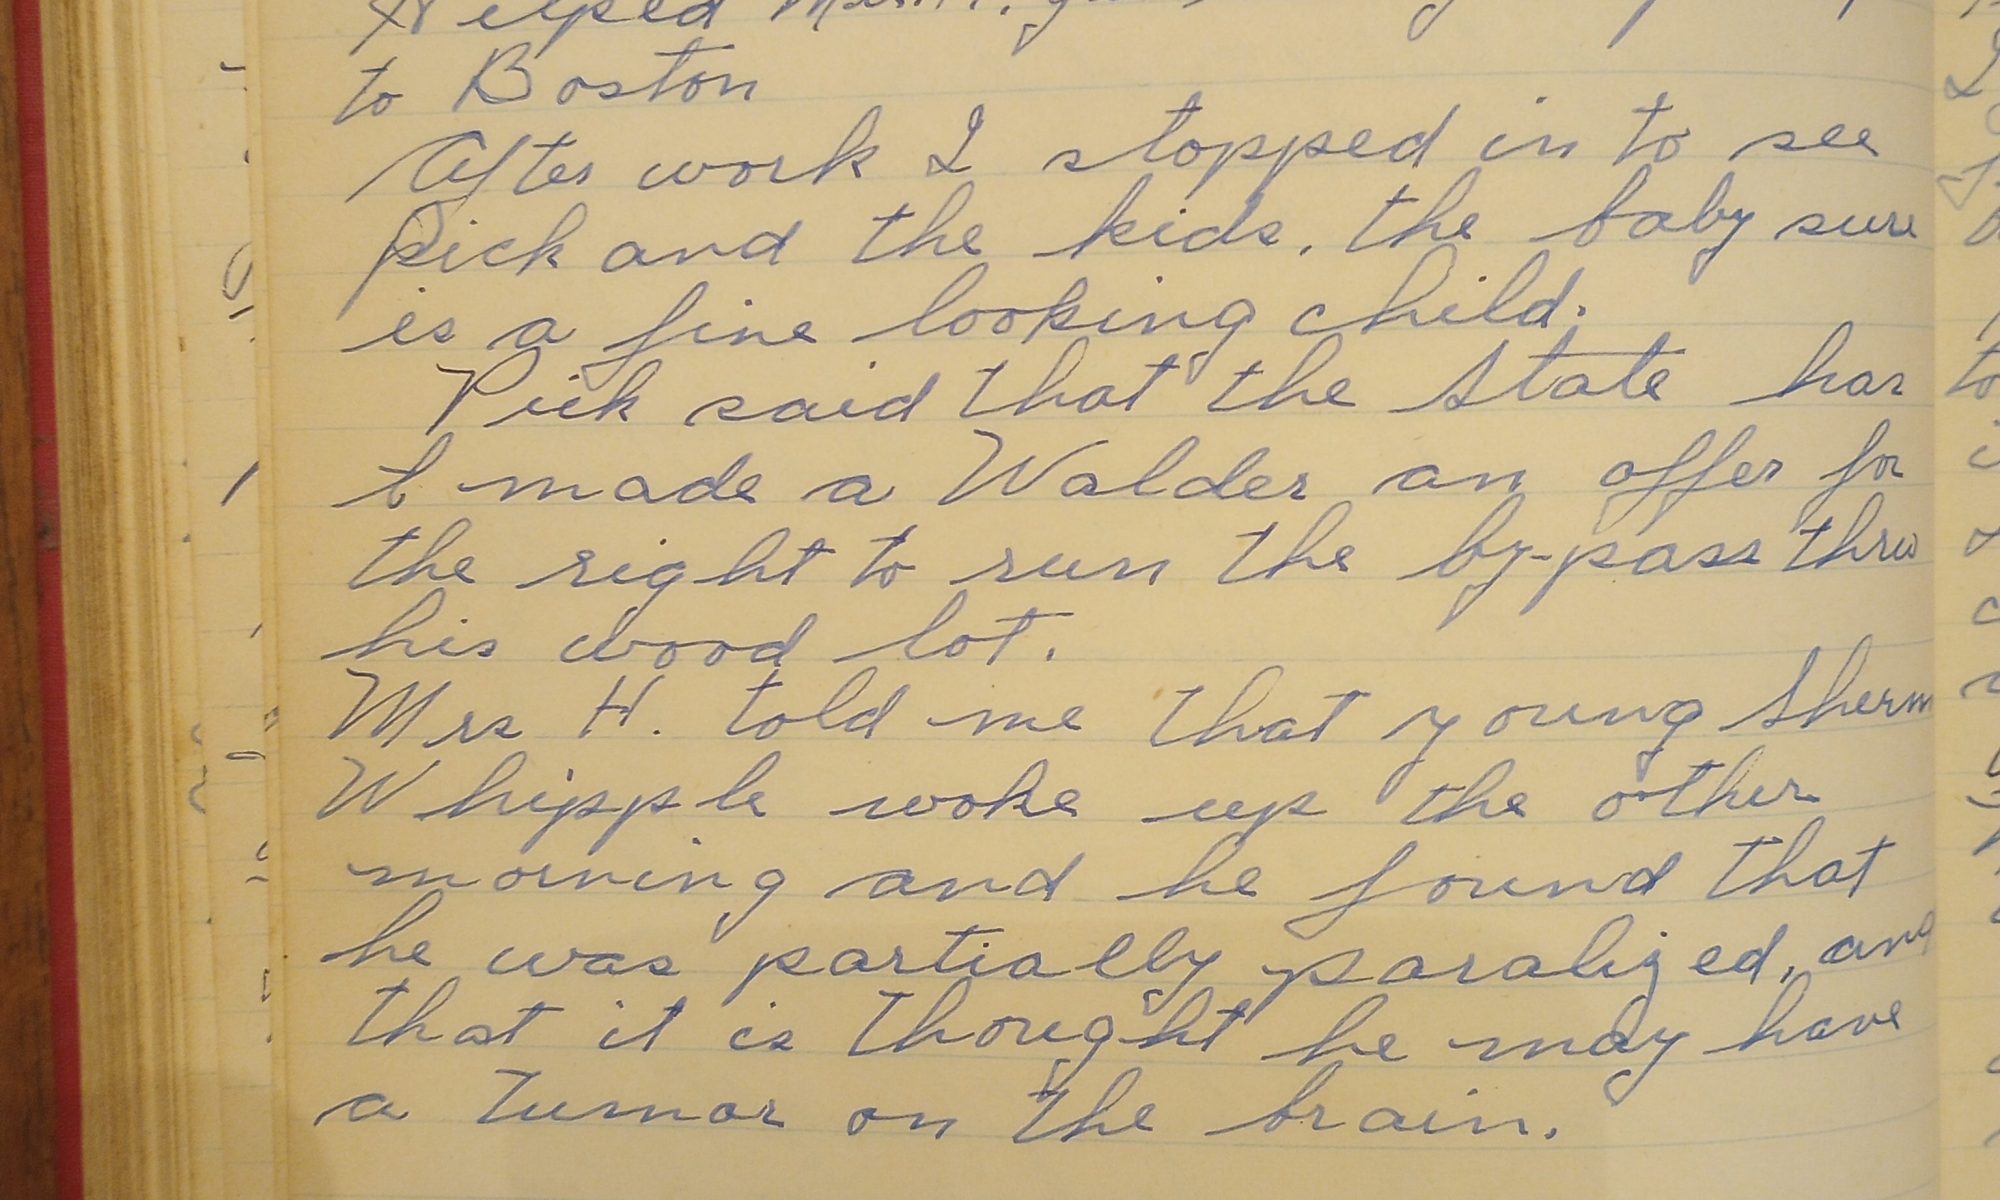 Helped
to Boston
After work I stopped in to see
Pick and the kids, the baby sure
is a fine looking child.
Pick said that the State has
t made a Walder an offer for
the right to run the by-pass thru
his wood lot.
Mrs H. told me that young Sherm
Whipple woke up the other
morning and he found that
he was partially paralized, and
that it is thought he may have
a tumor on the brain.